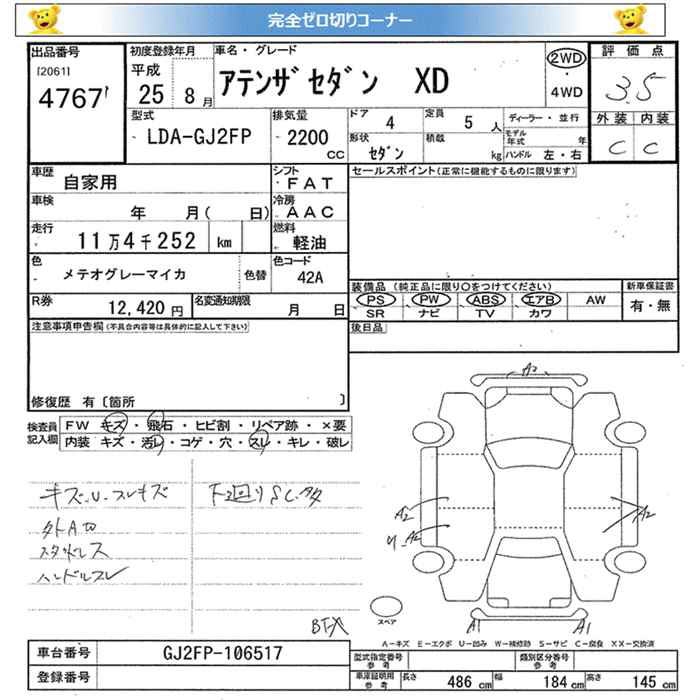 完全ゼロ切りコーナー
出品番号
[2061]
4767
初度登録年月
平成
25 8月
車名・グレード
アテンザセダン XD
2WD
・
4WD
評価点
3.5
外装 内装
C C
型式
LDA-GJ2FP
排気量
2200
CC
ドア 4
定員 5 人
形状 セダン
積載 kg
ディーラー・並行
モデル年式 年
ハンドル 左・右
車歴 自家用
シフト FAT
車検 年 月( 日)
冷房 AAC
走行 11万4千252 km
燃料 軽油
色 メテオグレーマイカ
色替
色コード 42A
R券 12,420円
名変通知期限 月 日
セールスポイント(正常に機能するものに限ります)
装備品 (純正品に限り○をつけてください)
PS PW ABS エアB AW
SR ナビ TV カワ
新車保証書
有・無
後日品
注意事項申告欄(不具合内容等は具体的に記入して下さい)
修復歴 有〔箇所 〕
検査員記入欄
FW キズ・飛石・ヒビ割・リペア跡・×要
内装 キズ・汚レ・コゲ・穴・スレ・キレ・破レ
キズ・U・スレキズ
下回りSC・タタ
ハンドルスレ
A2
A2
A2
A2
A1 A1
スペア
A-キズ E-エクボ U-凹み W-補修跡 S-サビ C-腐食 XX-交換済
車台番号 GJ2FP-106517
登録番号
型式指定番号 参考
類別区分番号 参考
車庫証明用 参考
長さ 486 cm 幅 184 cm 高さ 145 cm